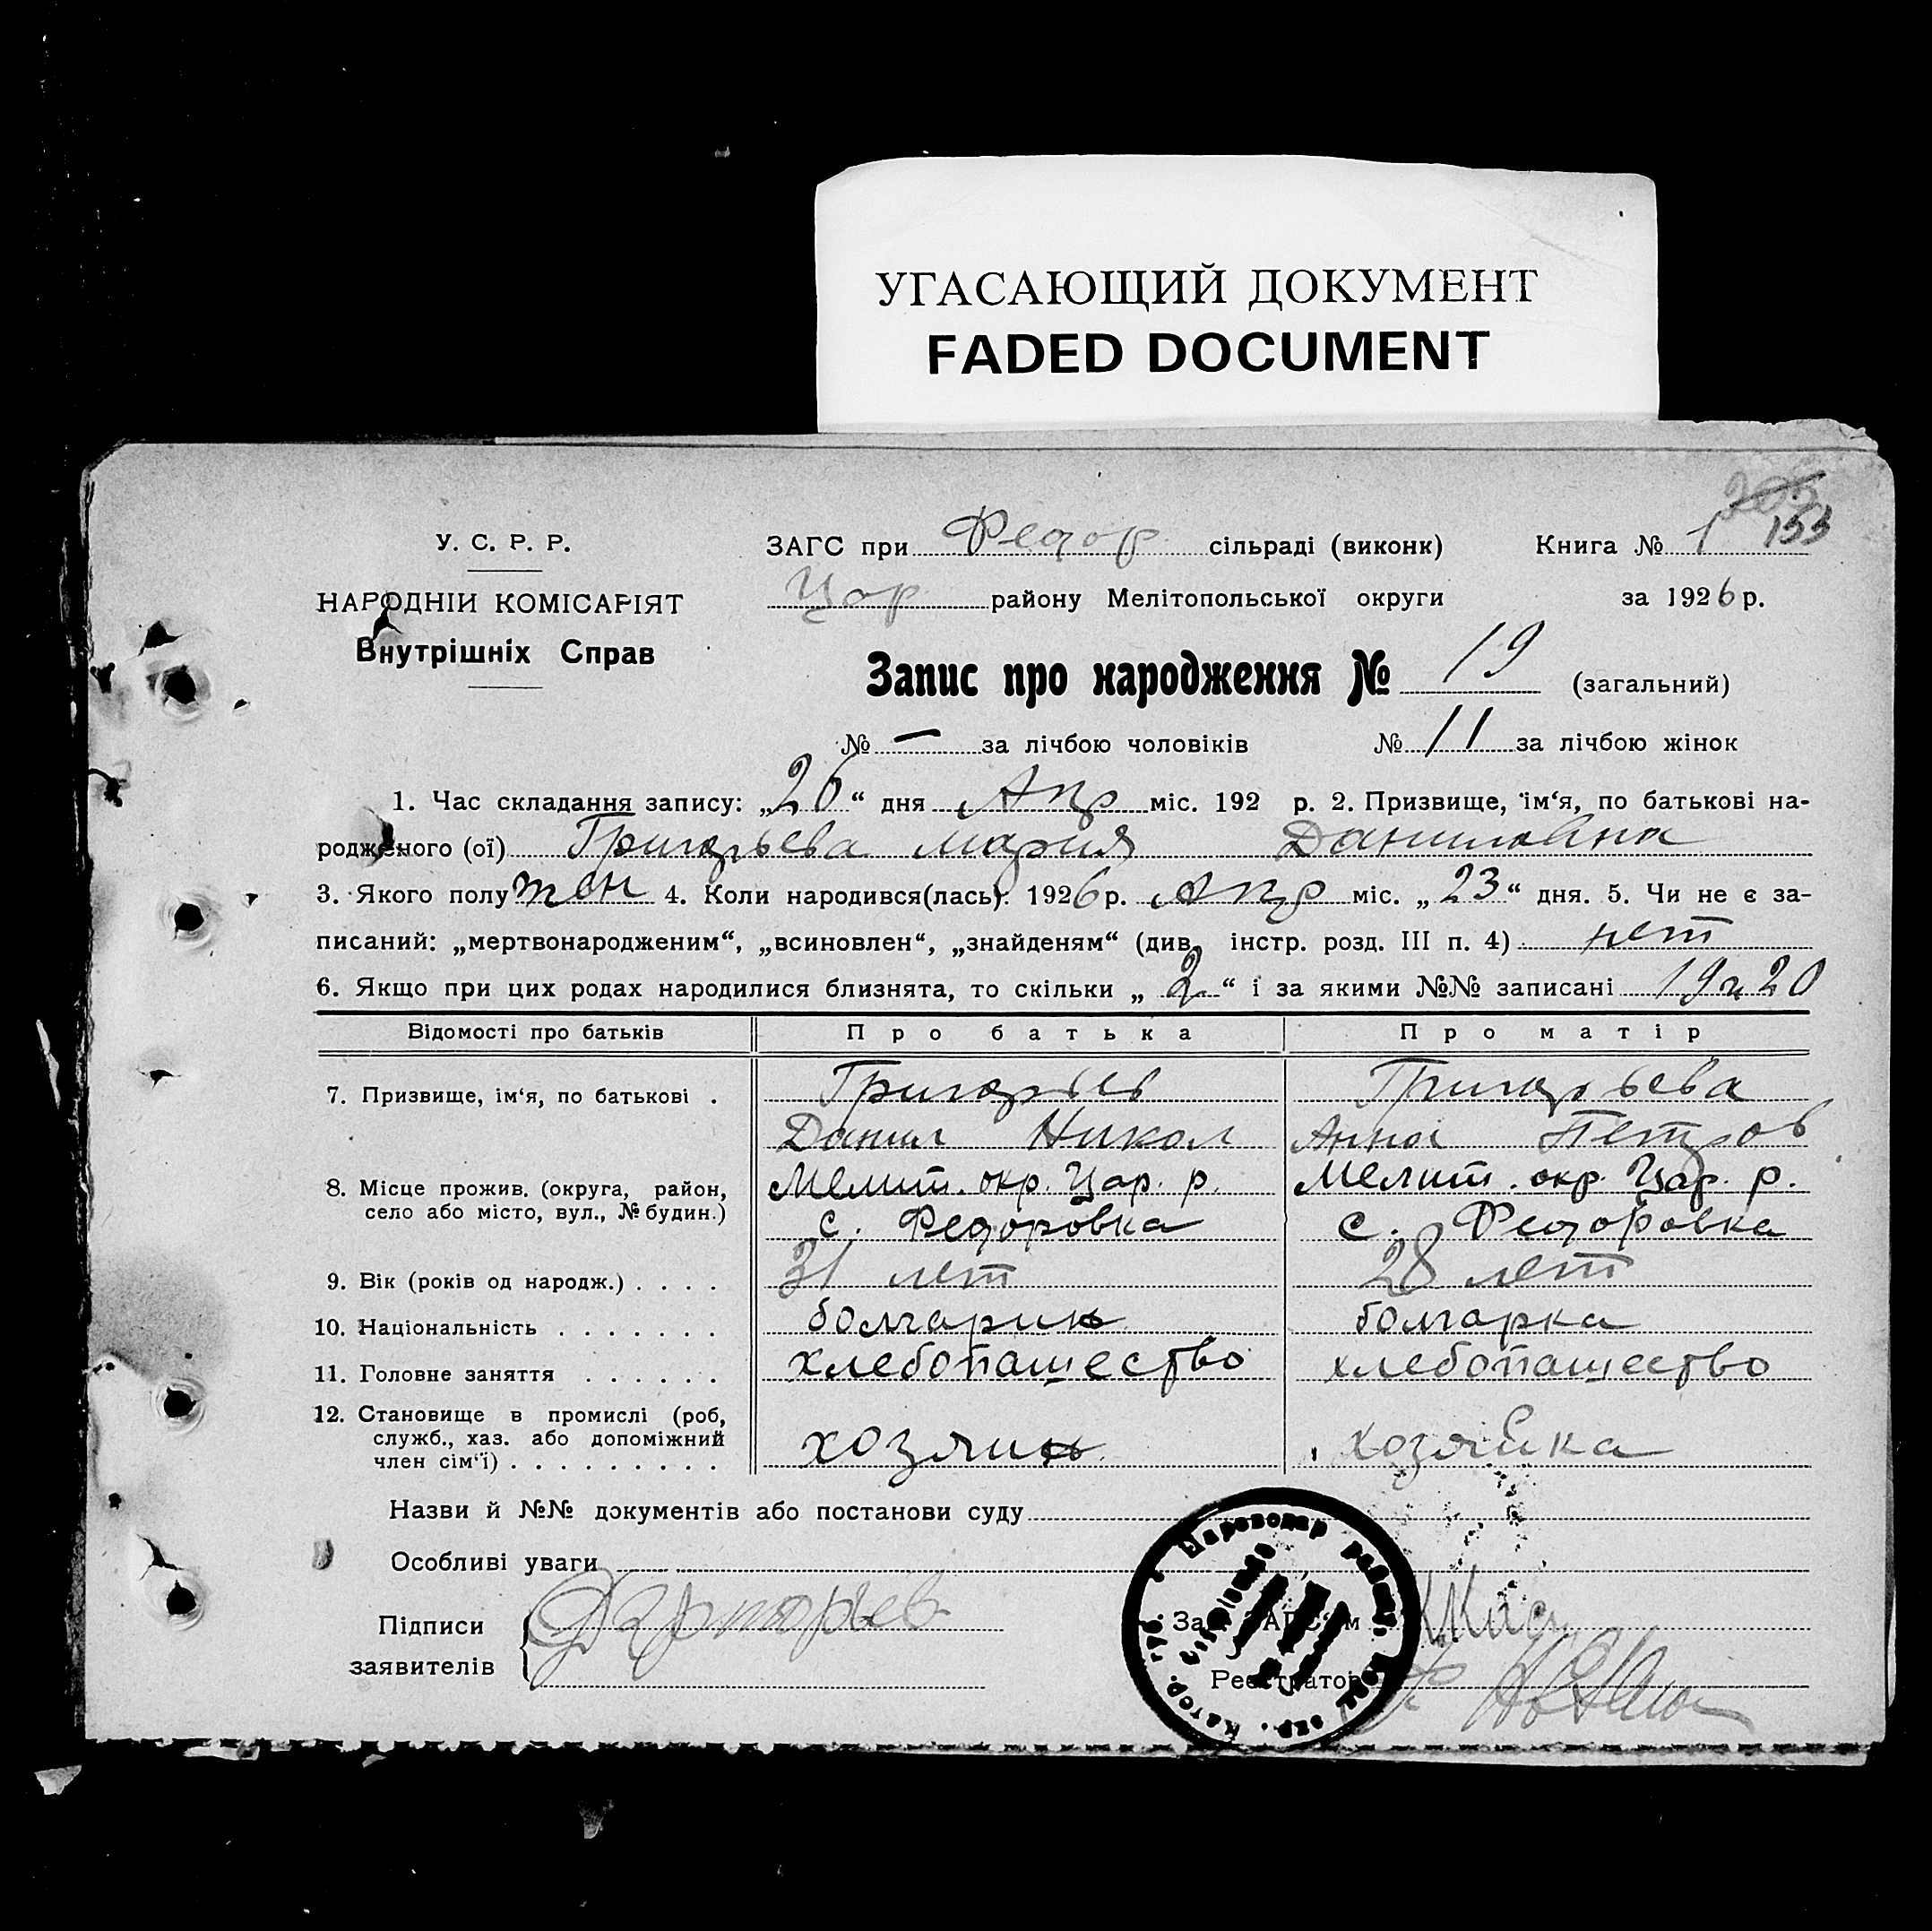 УГАСАЮЩИЙ ДОКУМЕНТ
FADED DOCUMENT
203
153
У. С. Р. Р.
НАРОДНІЙ КОМІСАРІЯТ
Внутрішніх Справ
ЗАГС при Федор сільраді (виконк) Книга № 1
Цар району Мелітопольської округи за 1926 р.
Запис про народження № 19 (загальний)
№ — за лічбою чоловіків № 11 за лічбою жінок
1. Час складання запису: „26“ дня Апр міс. 192 р. 2. Призвище, ім‘я, по батькові на-
родженого (ої) Григорьева Мария Даниловна
3. Якого полу жен 4. Коли народився(лась): 1926 р. Апр міс. „23“ дня. 5. Чи не є за-
писаний: „мертвонародженим“, „всиновлен“, „знайденям“ (див. інстр. розд. III п. 4) нет
6. Якщо при цих родах народилися близнята, то скільки „2“ і за якими №№ записані 19 и 20
Відомості про батьків Про батька Про матір
7. Призвище, ім‘я, по батькові . Григорьев Григорьева
Данил Никол Анна Петров
8. Місце прожив. (округа, район, Мелит. окр. Цар. р. Мелит. окр. Цар. р.
село або місто, вул., № будин.) с. Федоровка с. Федоровка
9. Вік (років од народж.) . . . . 31 лет 28 лет
10. Національність . . . . . . . болгаринъ болгарка
11. Головне заняття . . . . . . хлебопашество хлебопашество
12. Становище в промислі (роб,
служб., хаз. або допоміжний хозяинъ хозяйка
член сім‘ї) . . . . . . . . .
Назви й №№ документів або постанови суду
Особливі уваги
Підписи
заявителів
Зав. ЗАГС‘ом
Реєстратор